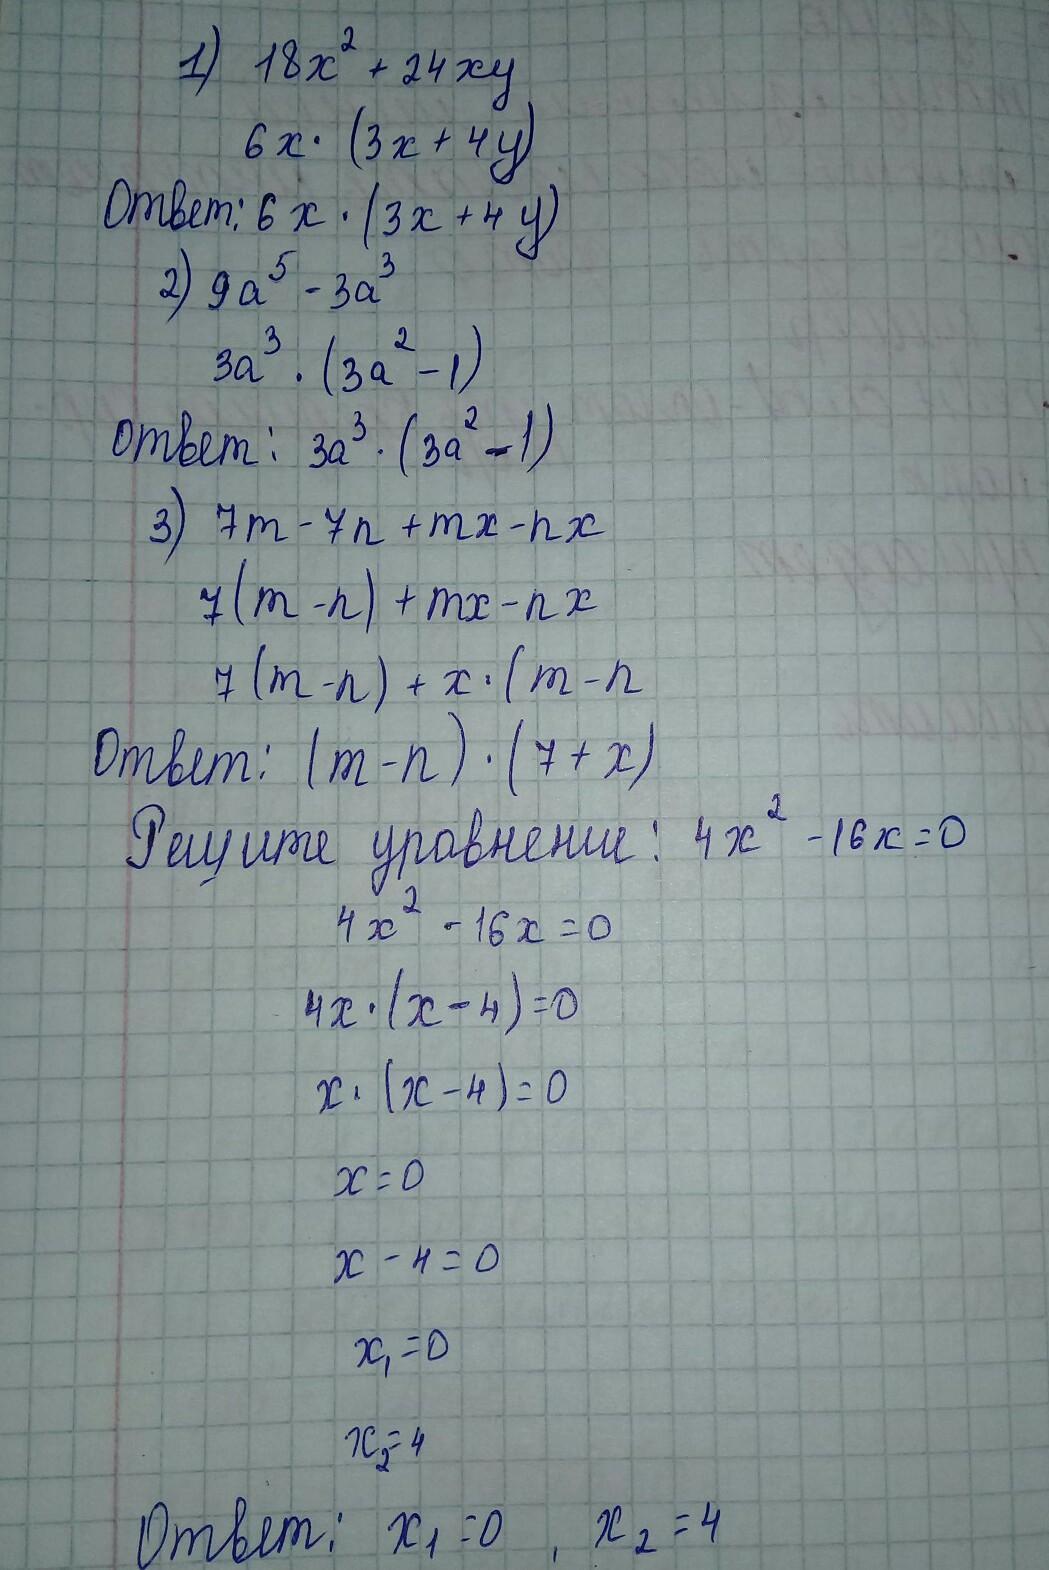 1) 18x² + 24xy
6x · (3x + 4y)
Ответ: 6x · (3x + 4y)
2) 9a⁵ - 3a³
3a³ · (3a² - 1)
Ответ: 3a³ · (3a² - 1)
3) 7m - 7n + mx - nx
7(m - n) + mx - nx
7(m - n) + x · (m - n
Ответ: (m - n) · (7 + x)
Решите уравнение: 4x² - 16x = 0
4x² - 16x = 0
4x · (x - 4) = 0
x · (x - 4) = 0
x = 0
x - 4 = 0
x₁ = 0
x₂ = 4
Ответ: x₁ = 0, x₂ = 4